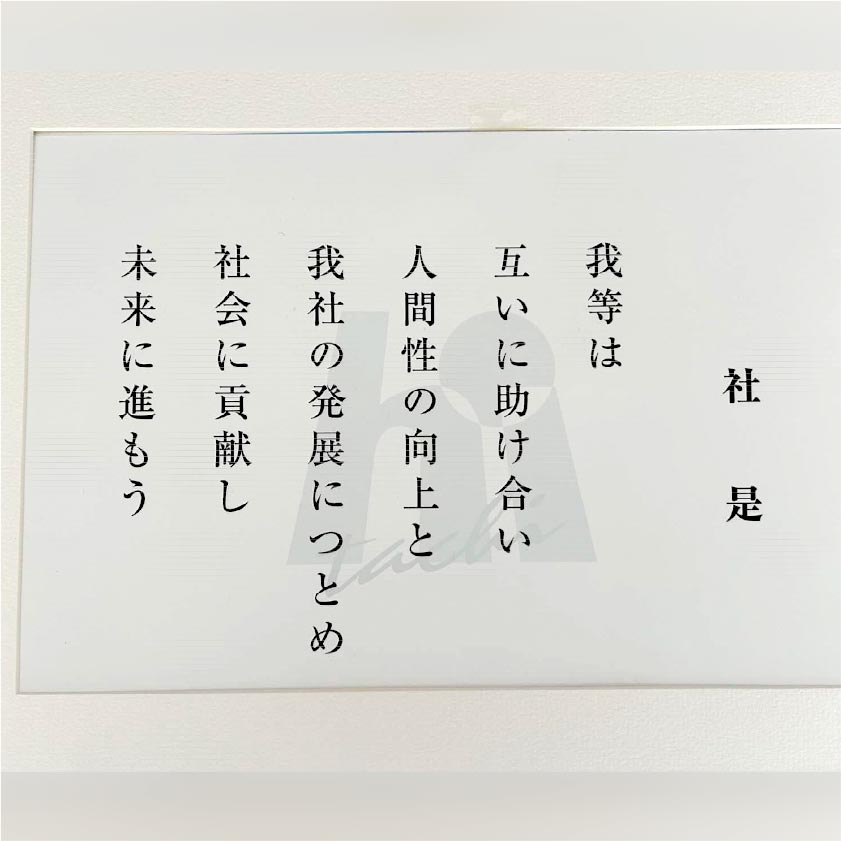 社是
我等は
互いに助け合い
人間性の向上と
我社の発展につとめ
社会に貢献し
未来に進もう
hi
tachi